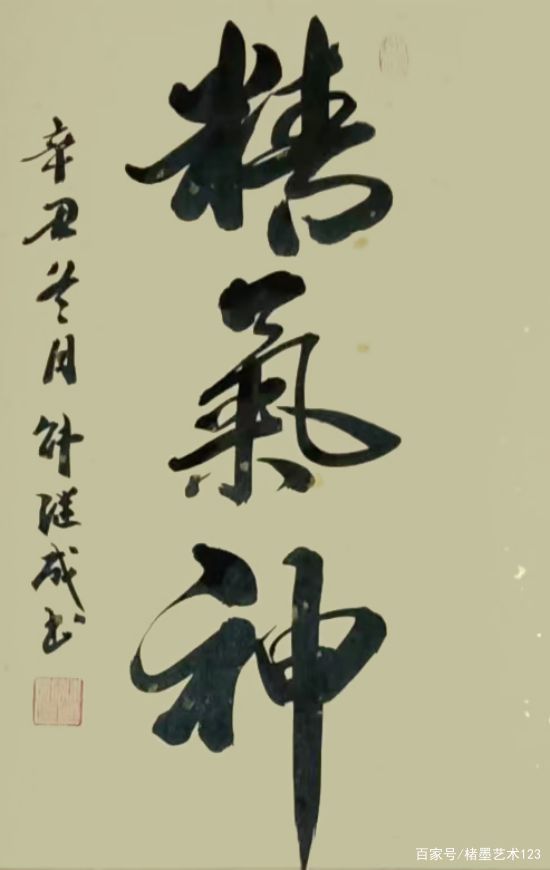 精氣神
辛丑冬月继成书
百家号/楮墨艺术123